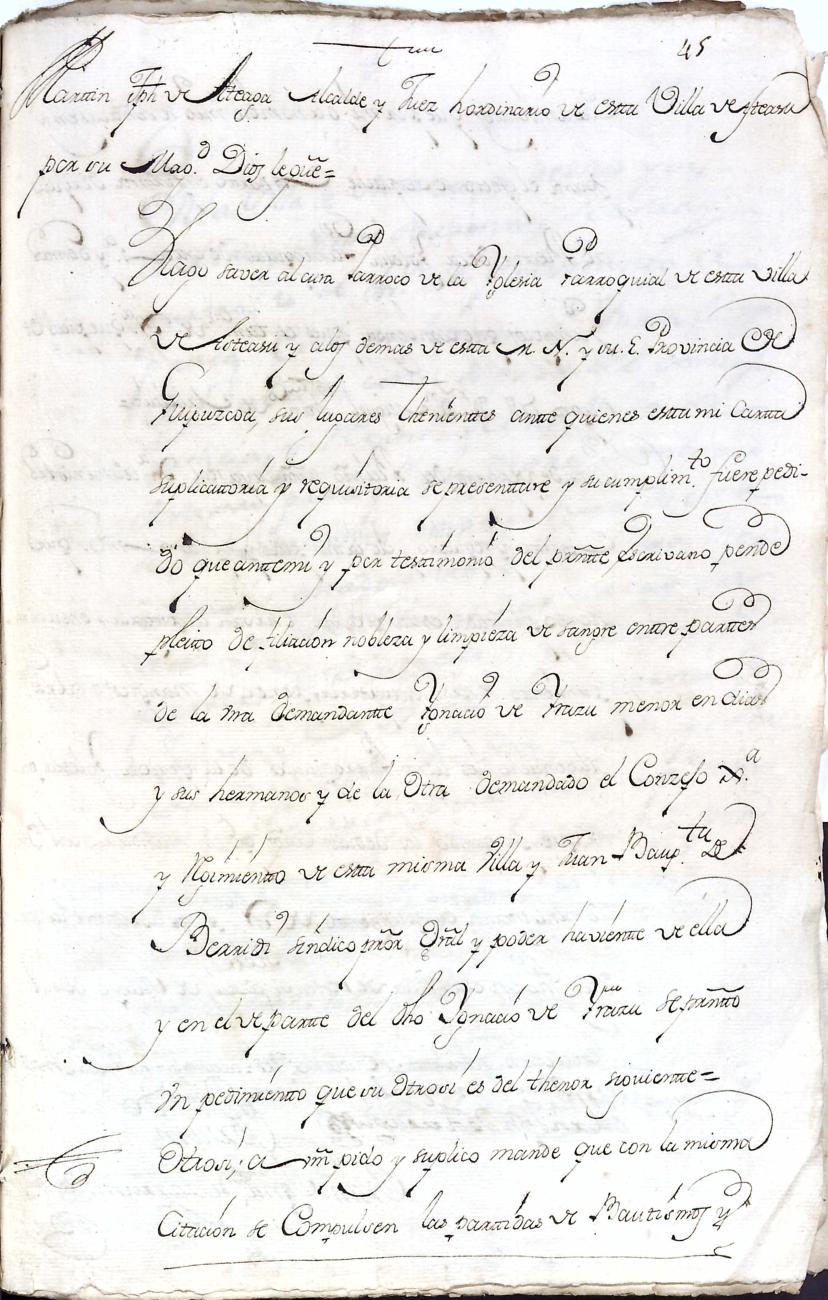 45
Martin Jph de Ateaga Alcalde y Juez hordinario de esta Villa de Asteasu
por su Magd. Dios le gue=
Hago saver al cura Parroco de la Yglesia Parroquial de esta villa
de Asteasu y a los demas de esta M. N. y su. E. Provincia de
Guipuzcoa, sus lugares thenienttes antte quienes esta mi Cartta
suplicattoria y requisitoria se presenttare y su cumplimto. fuere pedi-
do que antte mi y por testimonio del prstte escrivano pende
pleito de filiacion nobleza y limpieza de sangre enttre parttes
de la vna demandantte Ygnacio de Yrazu menor en dias
y sus hermanos y de la Otra demandado el Conzejo Jª
y Rejimientto de esta misma Villa y Juan Bauptta de
Berridi sindico pror Gral y poder havientte de ella
y en el de partte del dho Ygnacio de Yrazu se prstto
Vn pedimientto que su Otrosi es del thenor siguientte=
Otrosi; a Vm pido y suplico mande que con la misma
Citacion se Compulsen las parttidas de Bautismos y